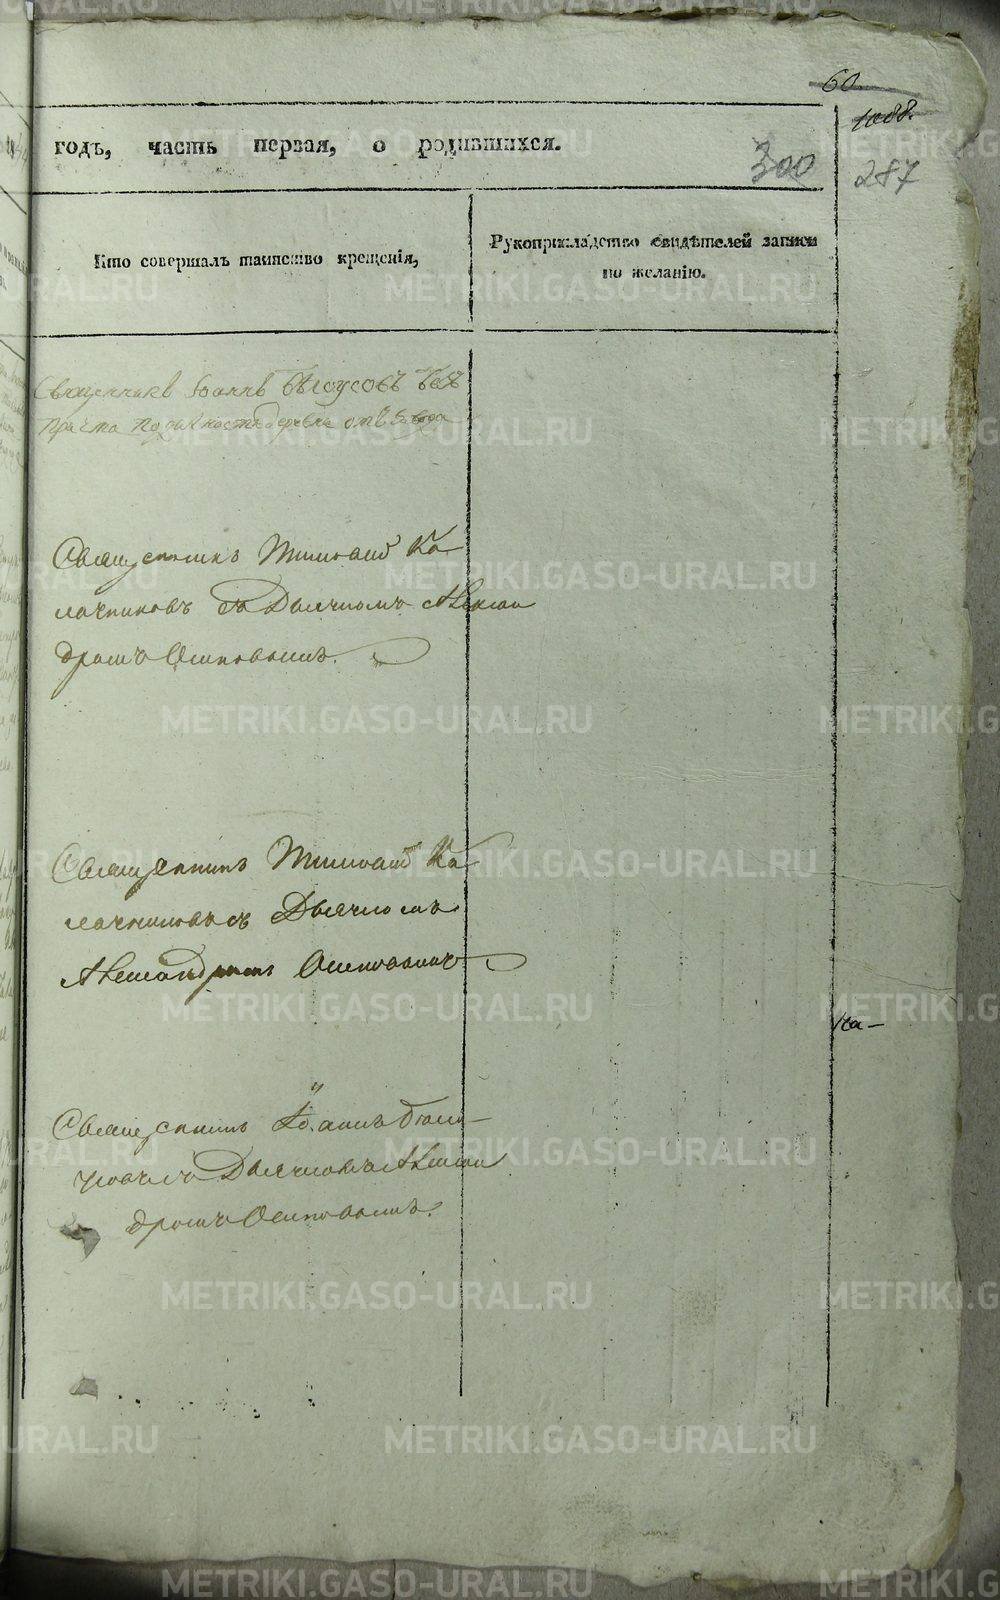 60.
1088.
годъ, часть первая, о родившихся.
300
287
Кто совершалъ таинство крещенія,
Рукоприкладство свидѣтелей записи
по желанію.
Священникъ Іоаннъ Бѣлоусовъ безъ
причта
Священникъ Тимофей Ка
лачниковъ съ Дьячкомъ Алексан
дромъ Осиповымъ.
Священникъ Тимофей Ка
лачниковъ съ Дьячкомъ
Александромъ Осиповымъ
на-
Священникъ Іоаннъ
Дьячкомъ Алексан
дромъ Осиповымъ.
METRIKI.GASO-URAL.RU